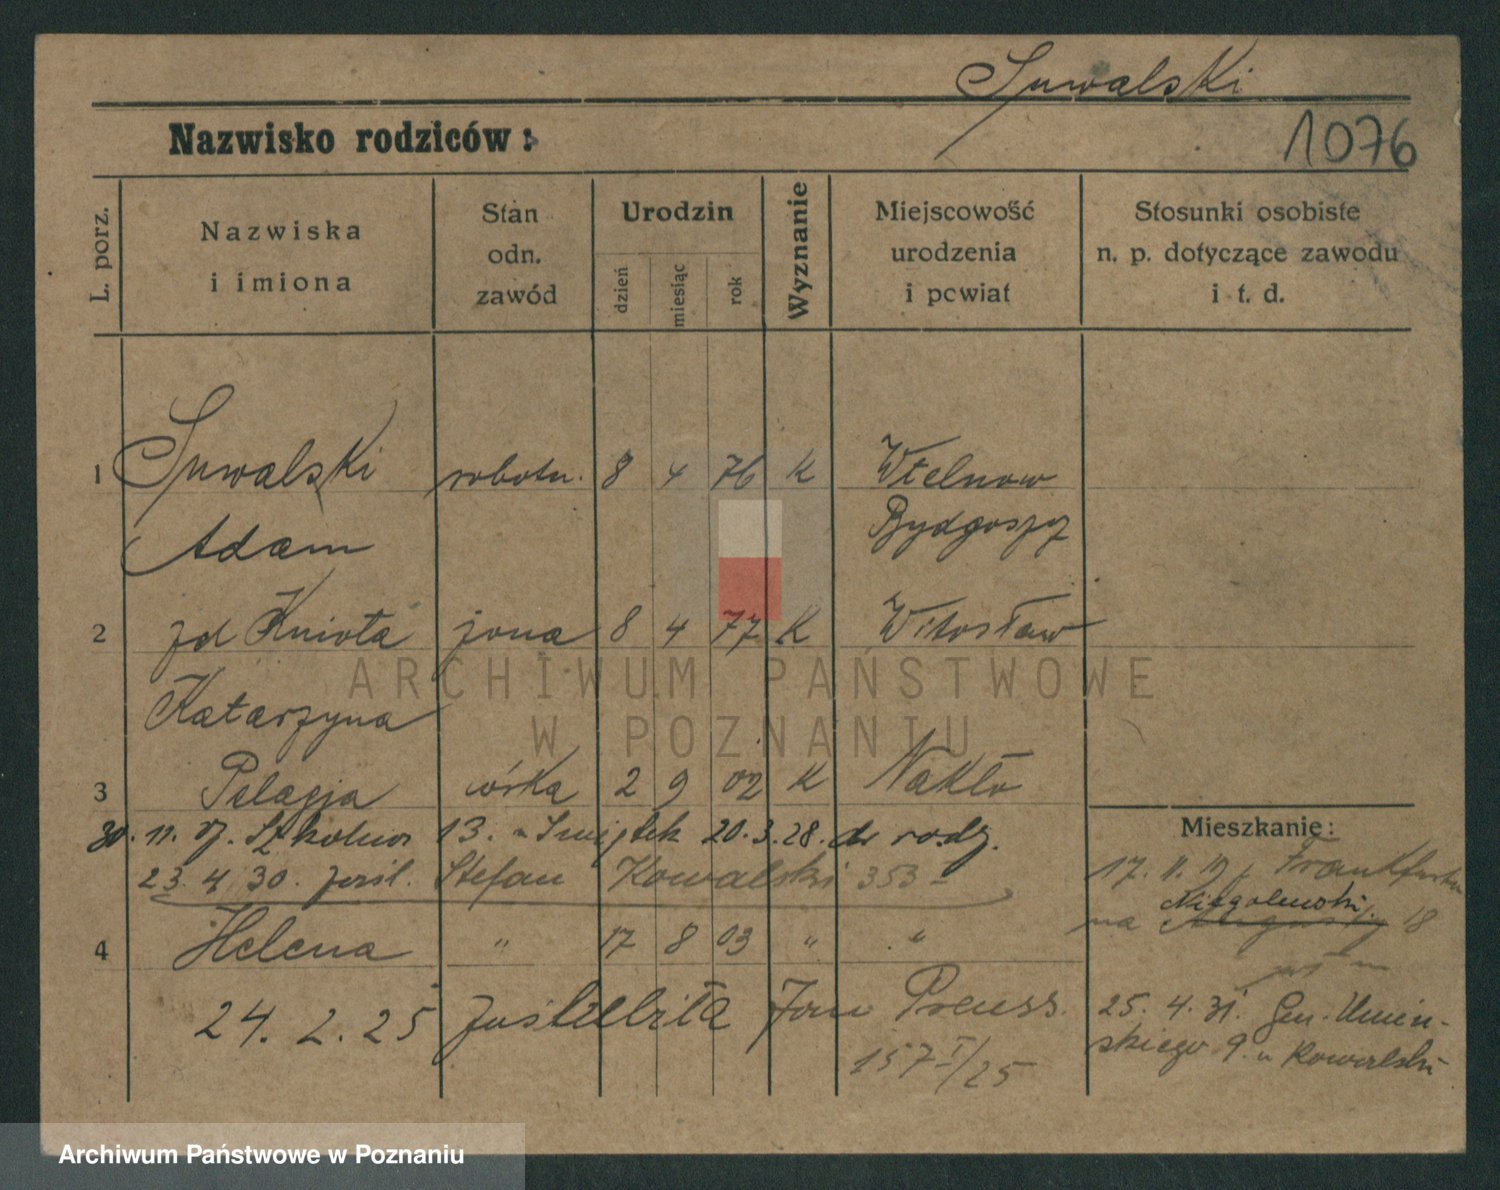 Suwalski
Nazwisko rodziców:
1076
L. porz.
Nazwiska
i imiona
Stan
odn.
zawód
Urodzin
dzień
miesiąc
rok
Wyznanie
Miejscowość
urodzenia
i powiat
Stosunki osobiste
n. p. dotyczące zawodu
i t. d.
1 Suwalski robotn. 8 4 76 K Wtelnow
Adam Bydgoszcz
2 zd Kniola żona 8 4 77 K Witosław
Katarzyna
ARCHIWUM PAŃSTWOWE
W POZNANIU
3 Pelagja córka 2 9 02 K Nakło
30. 11. 13. 20.3.28. do rodz.
23. 4 30. zaśl. Stefan Kowalski 353
4 Helena " 17 8 03 " "
24. 2. 25 zaślubiła Jan Preuss.
157 I/25
Mieszkanie:
17. 11.
na Niegolewski 18
25. 4. 31. Gen. Umiń-
skiego 9. u Kowalski
Archiwum Państwowe w Poznaniu